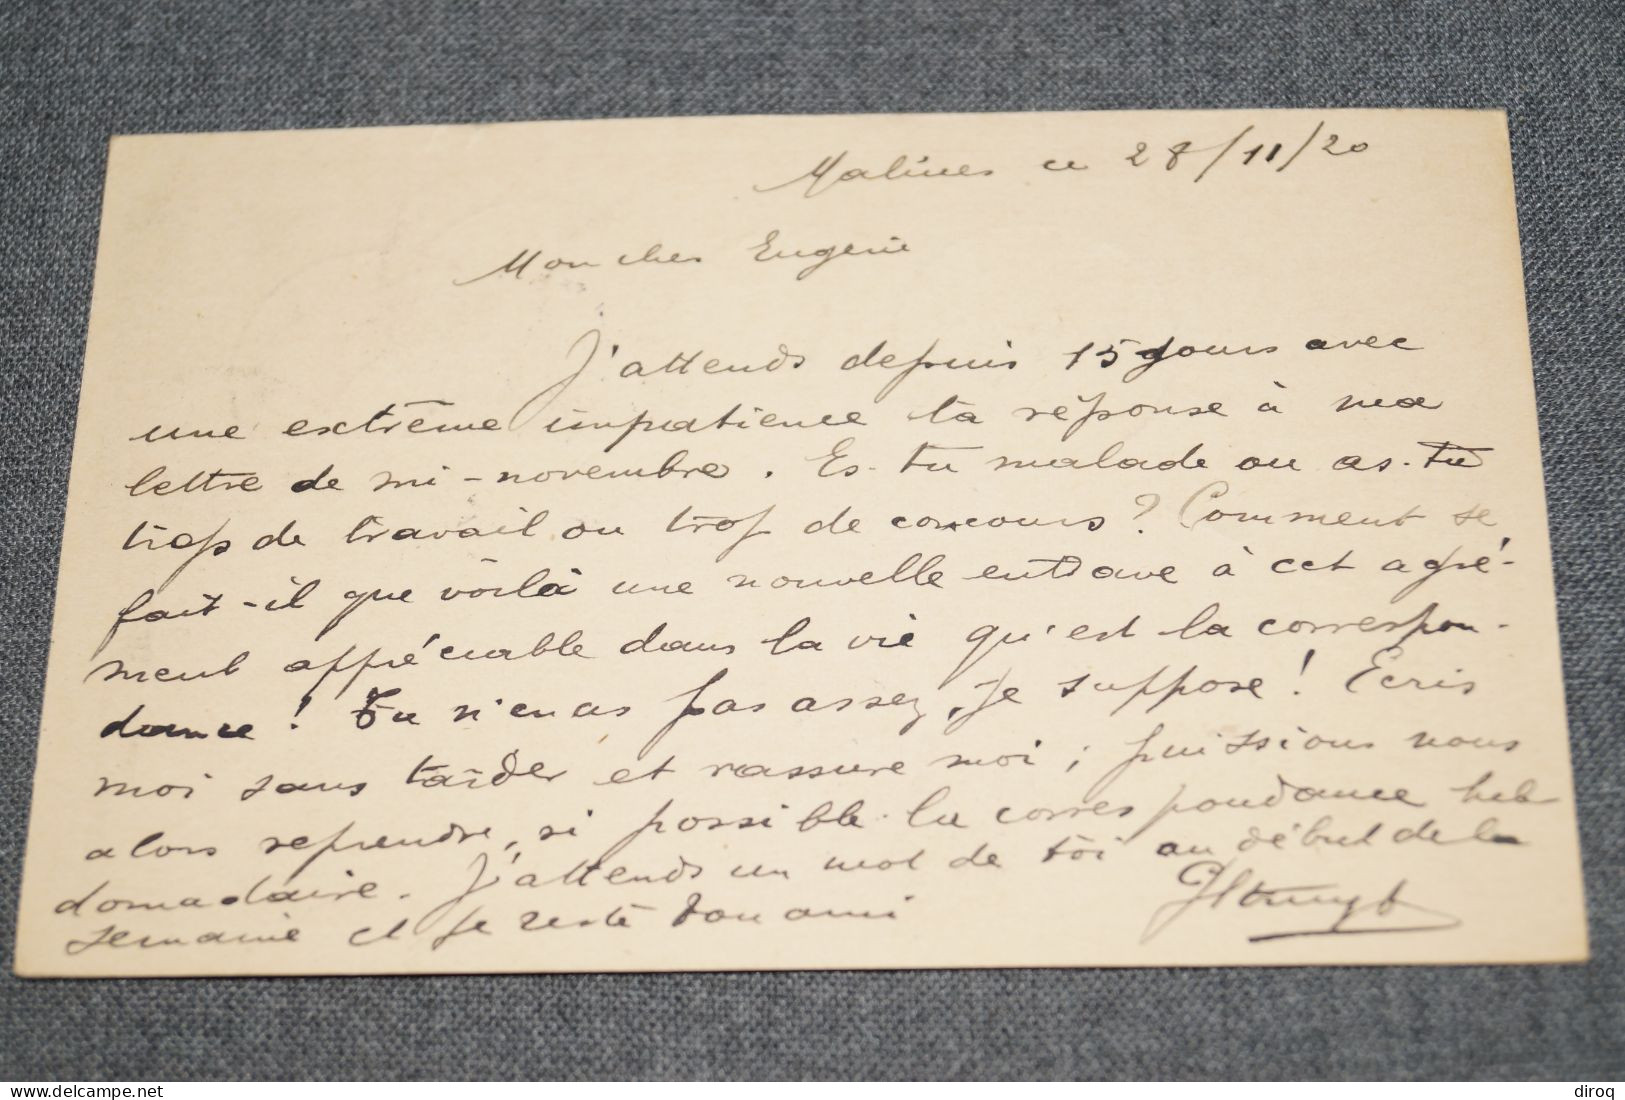 Malines ce 28/11/20
Mon cher Eugène
J'attends depuis 15 jours avec
une extrême impatience ta réponse à ma
lettre de mi-novembre. Es-tu malade ou as-tu
trop de travail ou trop de concours? Comment se
fait-il que voilà une nouvelle entrave à cet agré-
ment appréciable dans la vie qu'est la correspon-
dance! Tu n'en as pas assez, je suppose! Ecris
moi sans tarder et rassure moi; puissions nous
alors reprendre, si possible la correspondance heb
domadaire. J'attends un mot de toi au début de la
semaine et je reste ton ami
delcampe.net
diroq